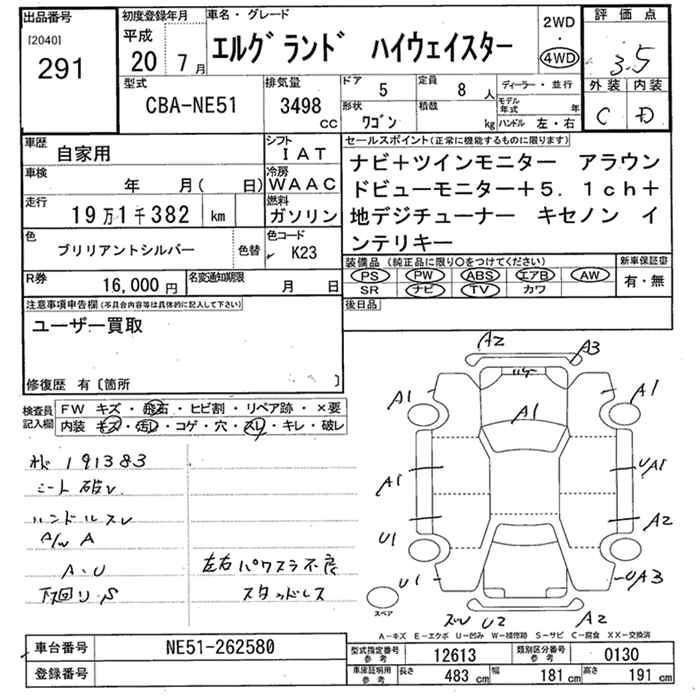 出品番号
[2040]
291
初度登録年月
平成
20 7月
車名・グレード
エルグランド ハイウェイスター
2WD
・
4WD
評価点
3.5
外装 内装
C D
型式
CBA-NE51
排気量
3498 cc
ドア 5
定員 8人
形状 ワゴン
積載 kg
ディーラー・並行
モデル年式 年
ハンドル 左・右
車歴 自家用
シフト IAT
車検 年 月( 日)
冷房 WAAC
走行 19万1千382 km
燃料 ガソリン
色 ブリリアントシルバー 色替
色コード K23
R券 16,000円
名変通知期限 月 日
セールスポイント(正常に機能するものに限ります)
ナビ+ツインモニター アラウン
ドビューモニター+5.1ch+
地デジチューナー キセノン イ
ンテリキー
装備品(純正品に限り○をつけてください)
PS PW ABS エアB AW
SR ナビ TV カワ
新車保証書
有・無
後日品
注意事項申告欄(不具合内容等は具体的に記入して下さい)
ユーザー買取
修復歴 有〔箇所 〕
検査員記入欄
FW キズ・飛石・ヒビ割・リペア跡・×要
内装 キズ・汚レ・コゲ・穴・スレ・キレ・破レ
191383
シート破レ
ハンドルスレ
A/W A
A・U
下回り・S
左右パワスラ不良
スタッドレス
A2 A3
A1 A1 A1
A1 UA1
A2
U1
U1 UA3
スペア
スレ U2 A2
A-キズ E-エクボ U-凹み W-補修跡 S-サビ C-腐食 XX-交換済
車台番号 NE51-262580
登録番号
型式指定番号参考 12613
類別区分番号参考 0130
車庫証明用参考 長さ 483cm 幅 181cm 高さ 191cm